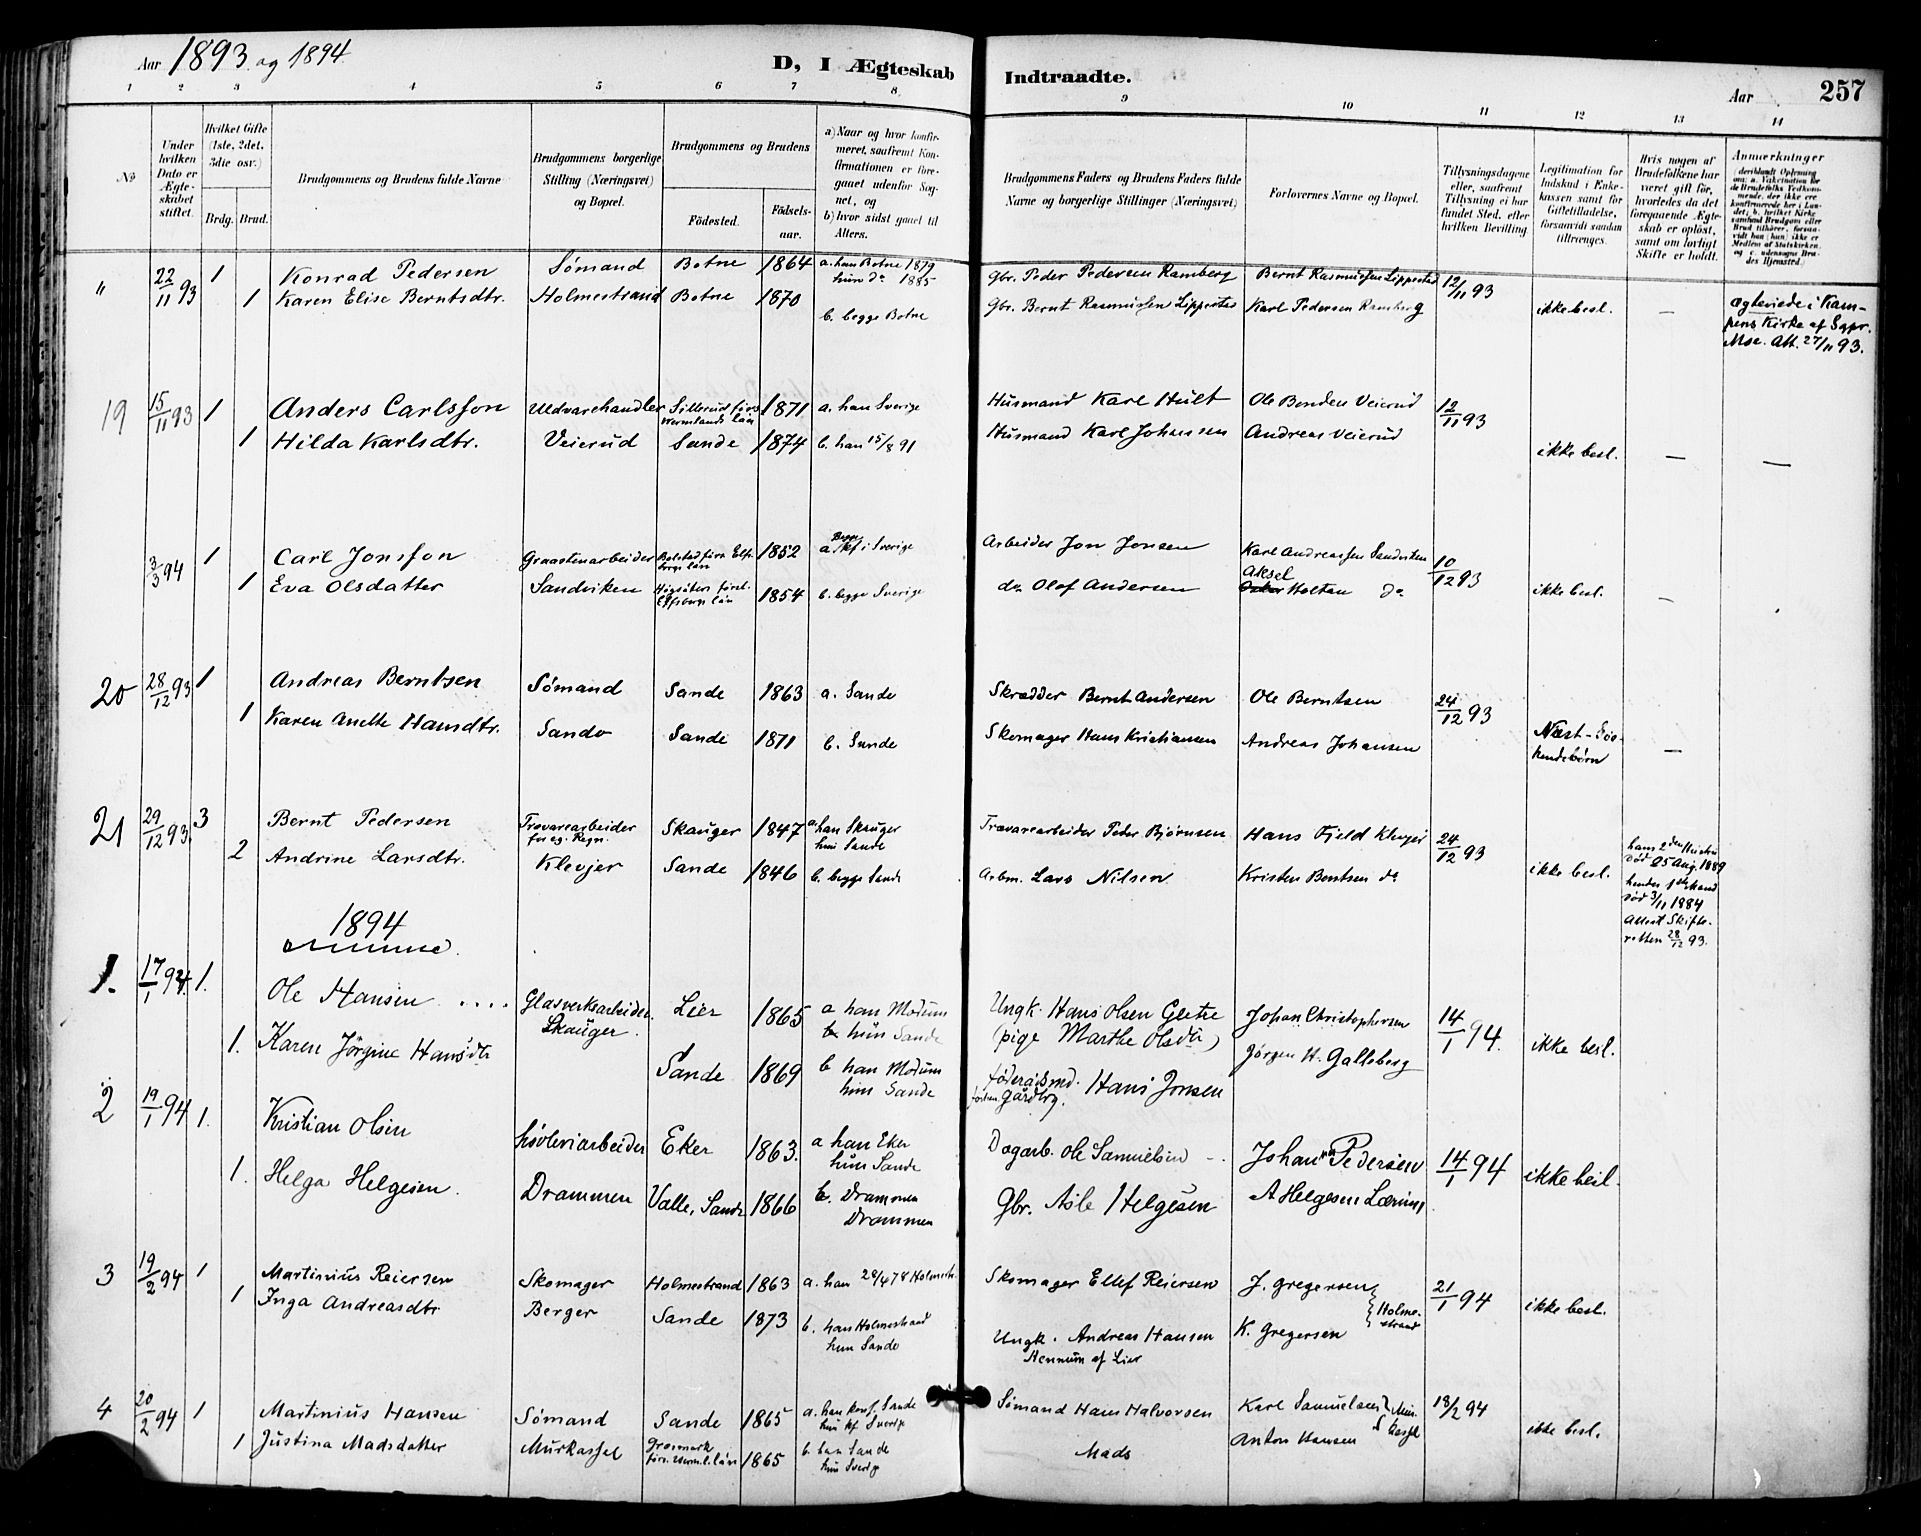 Aar 1893 og 1894
D, I Ægteskab Indtraadte.
Aar 257
1 2 3 4 5 6 7 8 9 10 11 12 13 14
No
Under hvilken Dato er Ægteskabet stiftet.
Hvilket Gifte (1ste, 2det, 3die osv.)
Brdg. Brud.
Brudgommens og Brudens fulde Navne
Brudgommens borgerlige Stilling (Næringsvei) og Bopæl.
Brudgommens og Brudens
Fødested.
Fødsels-aar.
a) Naar og hvor konfirmeret, saafremt Konfirmationen er foregaaet udenfor Sognet, og
b) hvor sidst gaaet til Alters.
Brudgommens Faders og Brudens Faders fulde Navne og borgerlige Stillinger (Næringsvei)
Forlovernes Navne og Bopæl.
Tillysningsdagene eller, saafremt Tillysning ei har fundet Sted, efter hvilken Bevilling.
Legitimation for Indskud i Enkekassen samt for Giftetilladelse, forsaavidt saadan tiltrænges.
Hvis nogen af Brudefolkene har været gift før, hvorledes da det foregaaende Ægteskab er opløst, samt om lovligt Skifte er holdt.
Anmærkninger
" 22/11 93 1 Konrad Pedersen Sømand Botne 1864 a. han Botne 1879 Gbr. Peder Pedersen Ramberg Bernt Rasmussen Lippestad 12/11 93
hun do 1885
1 Karen Elise Berntsdtr. Holmestrand Botne 1870 b. begge Botne Gbr. Bernt Rasmussen Lippestad Karl Pedersen Ramberg ikke besl. — Ægteviede i Kam-
pens Kirke af Sgpr.
Moe. Att. 27/11 93.
19 15/11 93 1 Anders Carlsson Uldvarehandler Sillerud förs Wermlands län 1871 a. han Sverige Husmand Karl Hult Ole Bonden Veierud 12/11 93
1 Hilda Karlsdtr. Veierud Sande 1874 b. han 15/8 91 Husmand Karl Johansen Andreas Veierud ikke besl. — —
3/3 94 1 Carl Jonsson Graastenarbeider Bolstad förs Elfsborgs län 1852 a Begge kf i Sverige Arbeider Jon Jonsen Karl Andreassen Sandviken 10/12 93
1 Eva Olsdatter Sandviken Högsäters förs. Elfsborgs län 1854 b. begge Sverige do Olof Andersen Aksel Holtan do ikke besl. —
20 28/12 93 1 Andreas Berntsen Sømand Sande 1863 a. Sande Skrædder Bernt Andersen Ole Berntsen 24/12 93
1 Karen Anette Hansdtr. Sando Sande 1871 b. Sande Skomager Hans Kristiansen Andreas Johansen Næst-Søs-
kendebørn —
21 29/12 93. 3 Bernt Pedersen Trævarearbeider for eg. Regn. Skauger 1847 a. han Skauger Trævarearbeider Peder Bjørnsen Hans Fjeld Klevjer 24/12 93
hun Sande
2 Andrine Larsdtr. Klevjer Sande 1846 b. begge Sande Arbm. Lars Nilsen Kristen Bentsen do ikke besl. hans 2den Hustru
død 25 Aug. 1889
hendes 1ste Mand
død 3/11 1884
Attest Skifte-
retten 28/12 93.
1894
1. 17/1 94. 1. Ole Hansen .... Glasverksarbeider Lier 1865 a han Modum Ungk. Hans Olsen Gletre Johan Christophersen 14/1 94.
Skauger. hun Sande (pige Marthe Olsdtr)
1. Karen Jørgine Hansdtr Sande 1869 b han Modum føderaadsmd. Hans Jonsen Jørgen H. Galleberg ikke besl.
hun Sande
2 19/1 94 1. Kristian Olsen Høvleriarbeider Eker 1863. a han Eker Dagarb. Ole Samuelsen Johan Pedersen 14/1 94
hun Sande
1. Helga Helgesen. Drammen Valle, Sande 1866 b. Drammen Gbr. Asle Helgesen A Helgesen Lærum ikke besl.
Drammen
3 19/2 94 1 Martinius Reiersen Skomager Holmestrand 1863 a. han 28/4 78 Holmestr. Skomager Ellef Reiersen J. Gregersen 21/1 94
1 Inga Andreasdtr Berger Sande 1873 b. han Holmestrand Ungk. Andreas Hansen K. Gregersen Holme-
strand ikke besl.
hun Sande Hennum af Lier
4 20/2 94 1 Martinius Hansen Sømand Sande 1865 a. han konf. Sande Sømand Hans Halvorsen Karl Samuelsen 18/2 94
hun kf Sverige
1 Justina Madsdatter Murkassel Gräsmark förs. Verml. län 1865 b. han Sande Mads Anton Hansen ikke besl.
hun Sverige